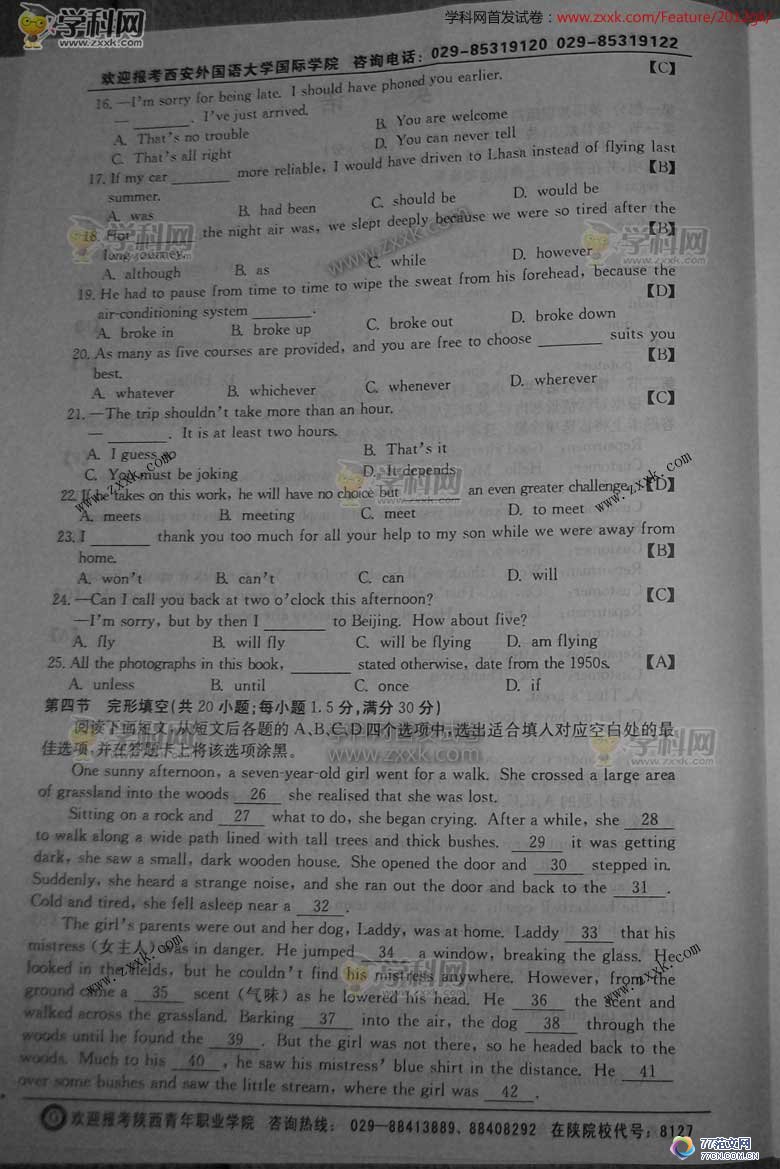 学科网首发试卷:www.zxxk.com/Feature/2012gk/
学科网
www.zxxk.com
欢迎报考西安外国语大学国际学院 咨询电话:029-85319120 029-85319122
16. —I'm sorry for being late. I should have phoned you earlier. 【C】
— ______. I've just arrived.
A. That's no trouble B. You are welcome
C. That's all right D. You can never tell
17. If my car ______ more reliable, I would have driven to Lhasa instead of flying last
summer. 【B】
A. was B. had been C. should be D. would be
18. Hot ______ the night air was, we slept deeply because we were so tired after the
long journey. 【B】
A. although B. as C. while D. however
19. He had to pause from time to time to wipe the sweat from his forehead, because the
air-conditioning system ______. 【D】
A. broke in B. broke up C. broke out D. broke down
20. As many as five courses are provided, and you are free to choose ______ suits you
best. 【B】
A. whatever B. whichever C. whenever D. wherever
21. —The trip shouldn't take more than an hour. 【C】
— ______. It is at least two hours.
A. I guess so B. That's it
C. You must be joking D. It depends
22. If he takes on this work, he will have no choice but ______ an even greater challenge. 【D】
A. meets B. meeting C. meet D. to meet
23. I ______ thank you too much for all your help to my son while we were away from
home. 【B】
A. won't B. can't C. can D. will
24. —Can I call you back at two o'clock this afternoon? 【C】
—I'm sorry, but by then I ______ to Beijing. How about five?
A. fly B. will fly C. will be flying D. am flying
25. All the photographs in this book, ______ stated otherwise, date from the 1950s. 【A】
A. unless B. until C. once D. if
第四节 完形填空(共20小题;每小题1.5分,满分30分)
阅读下面短文,从短文后各题的A、B、C、D四个选项中,选出适合填入对应空白处的最
佳选项,并在答题卡上将该选项涂黑。
One sunny afternoon, a seven-year-old girl went for a walk. She crossed a large area
of grassland into the woods 26 she realised that she was lost.
Sitting on a rock and 27 what to do, she began crying. After a while, she 28
to walk along a wide path lined with tall trees and thick bushes. 29 it was getting
dark, she saw a small, dark wooden house. She opened the door and 30 stepped in.
Suddenly, she heard a strange noise, and she ran out the door and back to the 31.
Cold and tired, she fell asleep near a 32.
The girl's parents were out and her dog, Laddy, was at home. Laddy 33 that his
mistress (女主人) was in danger. He jumped 34 a window, breaking the glass. He
looked in the fields, but he couldn't find his mistress anywhere. However, from the
ground came a 35 scent (气味) as he lowered his head. He 36 the scent and
walked across the grassland. Barking 37 into the air, the dog 38 through the
woods until he found the 39. But the girl was not there, so he headed back to the
woods. Much to his 40, he saw his mistress' blue shirt in the distance. He 41
over some bushes and saw the little stream, where the girl was 42.
欢迎报考陕西青年职业学院 咨询热线: 029—88413889、88408292 在陕院校代号:8127
77范文网
www.77cn.com.cn